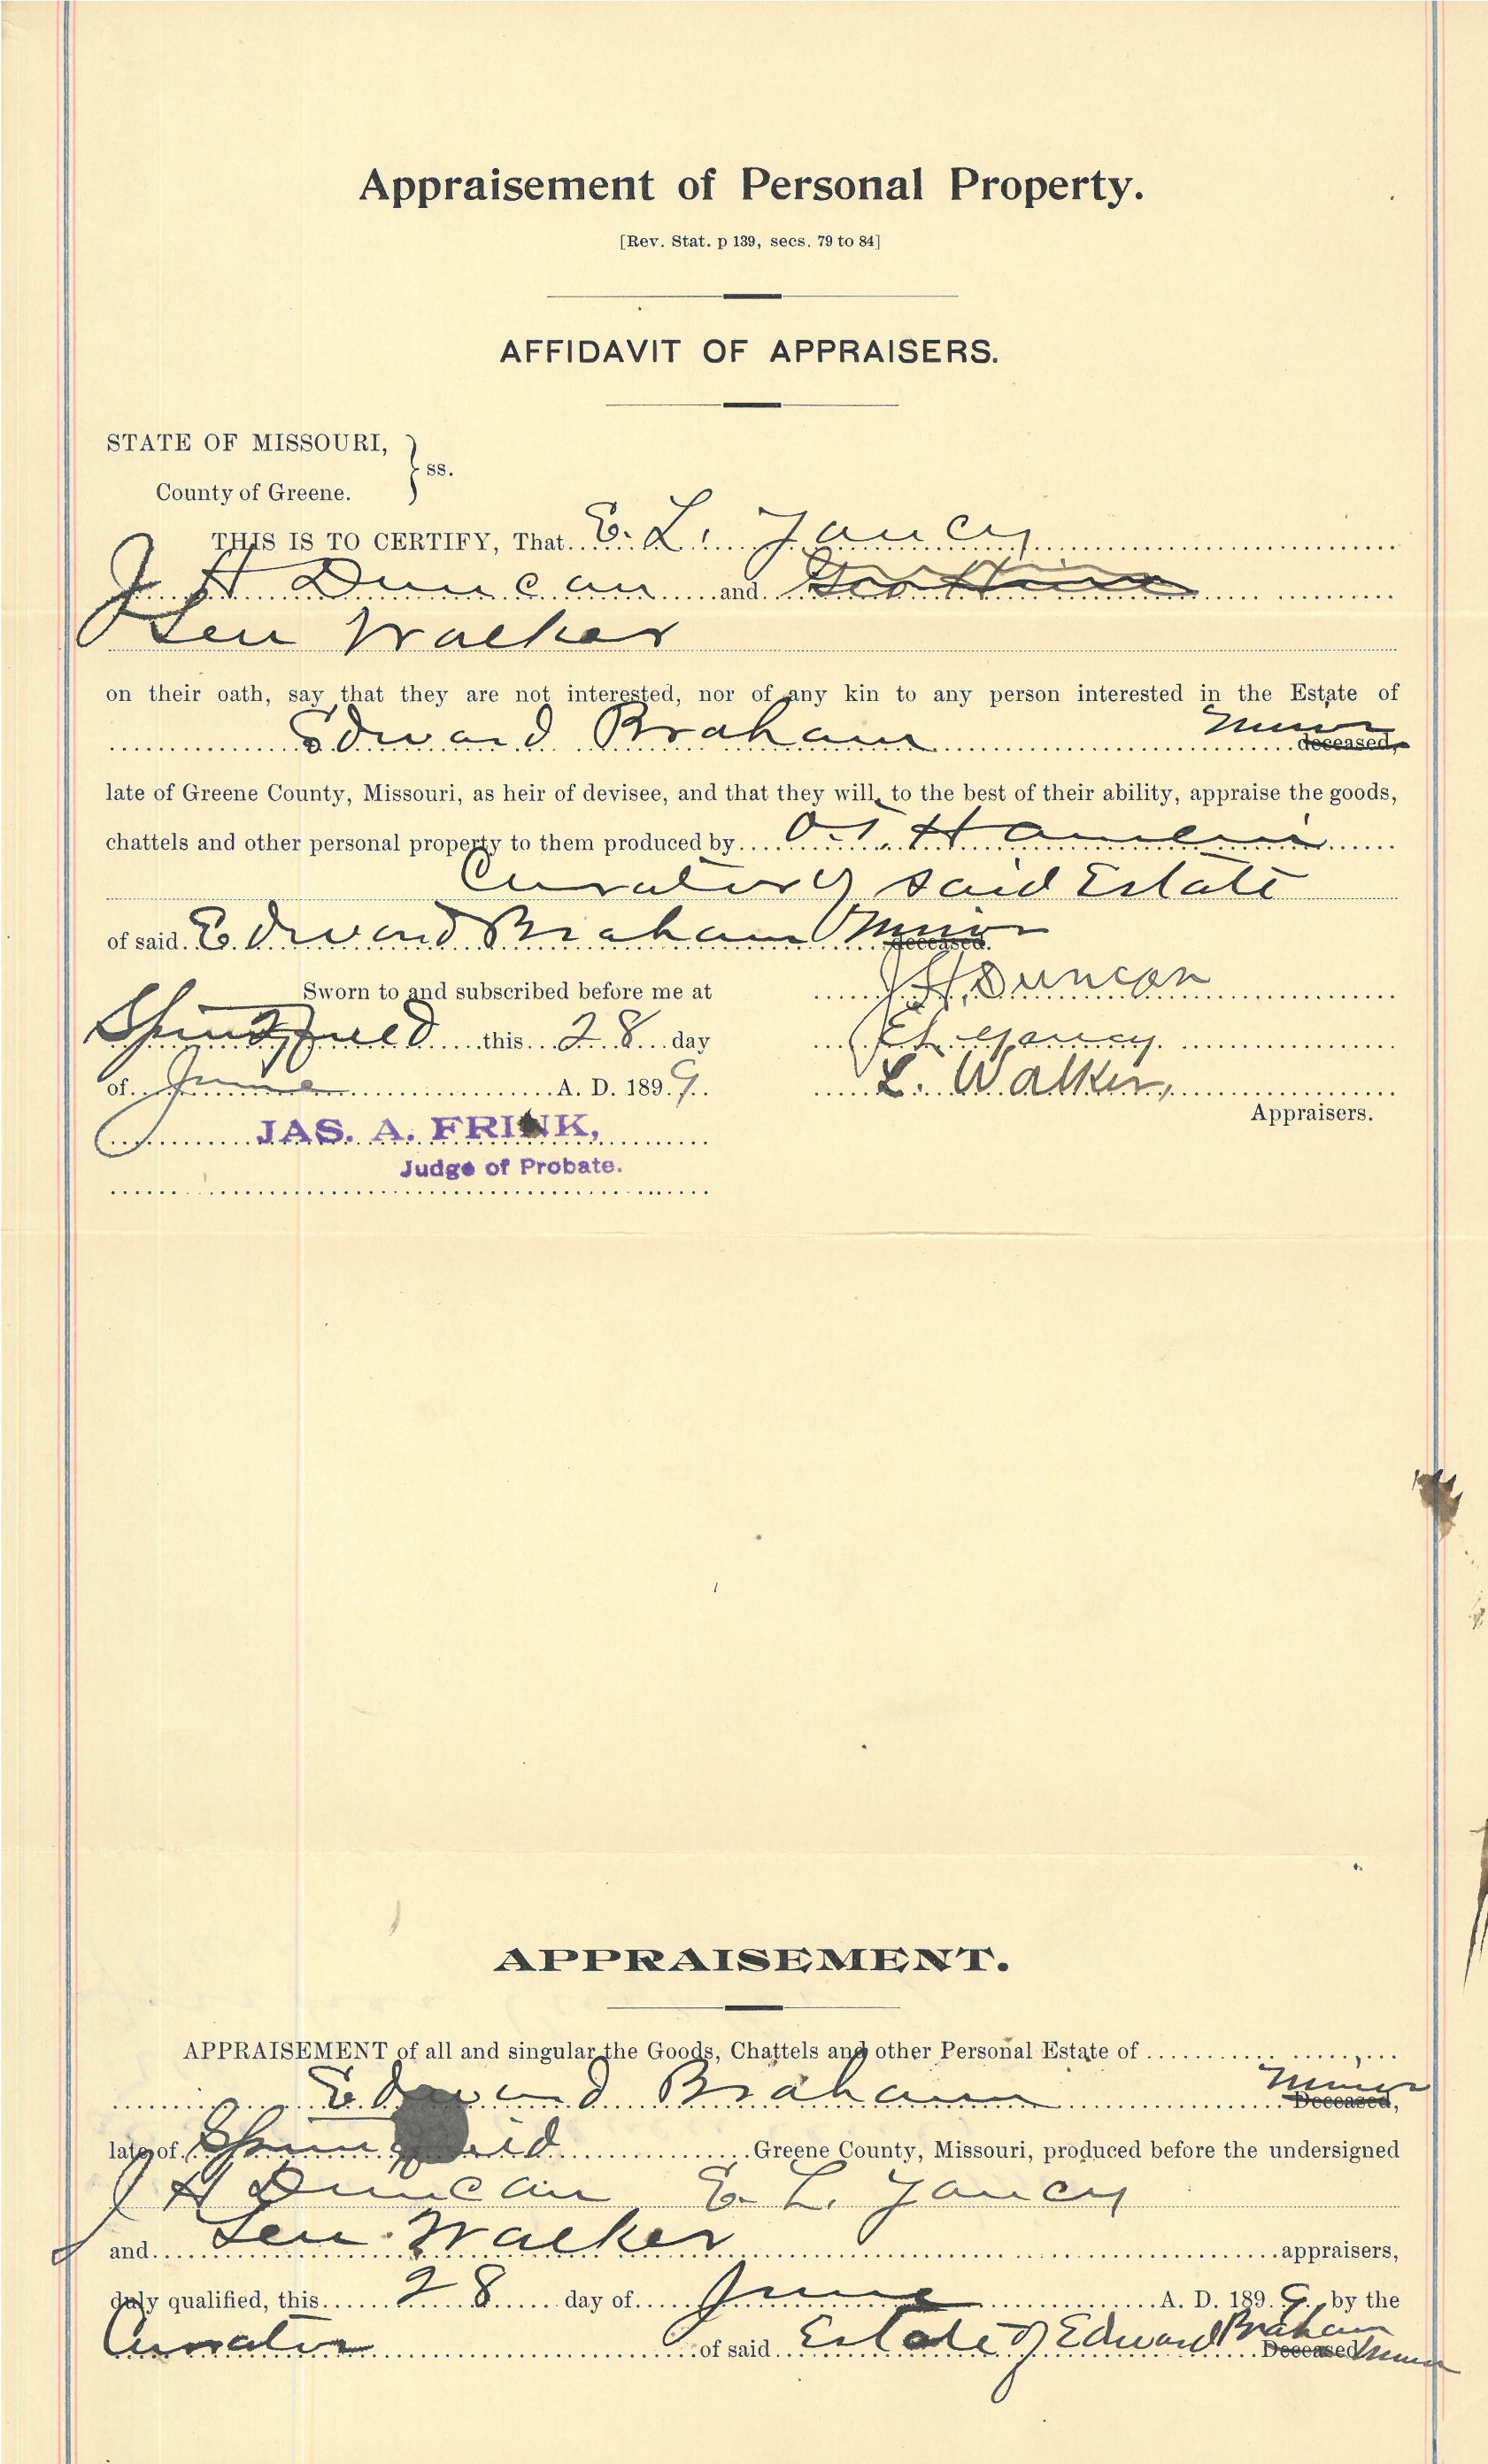 Appraisement of Personal Property.
[Rev. Stat. p 139, secs. 79 to 84]
AFFIDAVIT OF APPRAISERS.
STATE OF MISSOURI,
} ss.
County of Greene.
THIS IS TO CERTIFY, That E. L. Yancy
J H Duncan and
Len Walker
on their oath, say that they are not interested, nor of any kin to any person interested in the Estate of
Edward Braham Minor deceased,
late of Greene County, Missouri, as heir of devisee, and that they will, to the best of their ability, appraise the goods,
chattels and other personal property to them produced by O. T. Hamlin
Curator of said Estate
of said Edward Braham Minor deceased.
Sworn to and subscribed before me at J H. Duncan
Springfield this 28 day E L Yancy.
of June A. D. 1899. L. Walker,
Appraisers.
JAS. A. FRINK,
Judge of Probate.
APPRAISEMENT.
APPRAISEMENT of all and singular the Goods, Chattels and other Personal Estate of
Edward Braham Minor Deceased,
late of Springfield Greene County, Missouri, produced before the undersigned
J H Duncan E. L. Yancy
and Len Walker appraisers,
duly qualified, this 28 day of June A. D. 1899, by the
Curator of said Estate of Edward Braham Deceased Minor